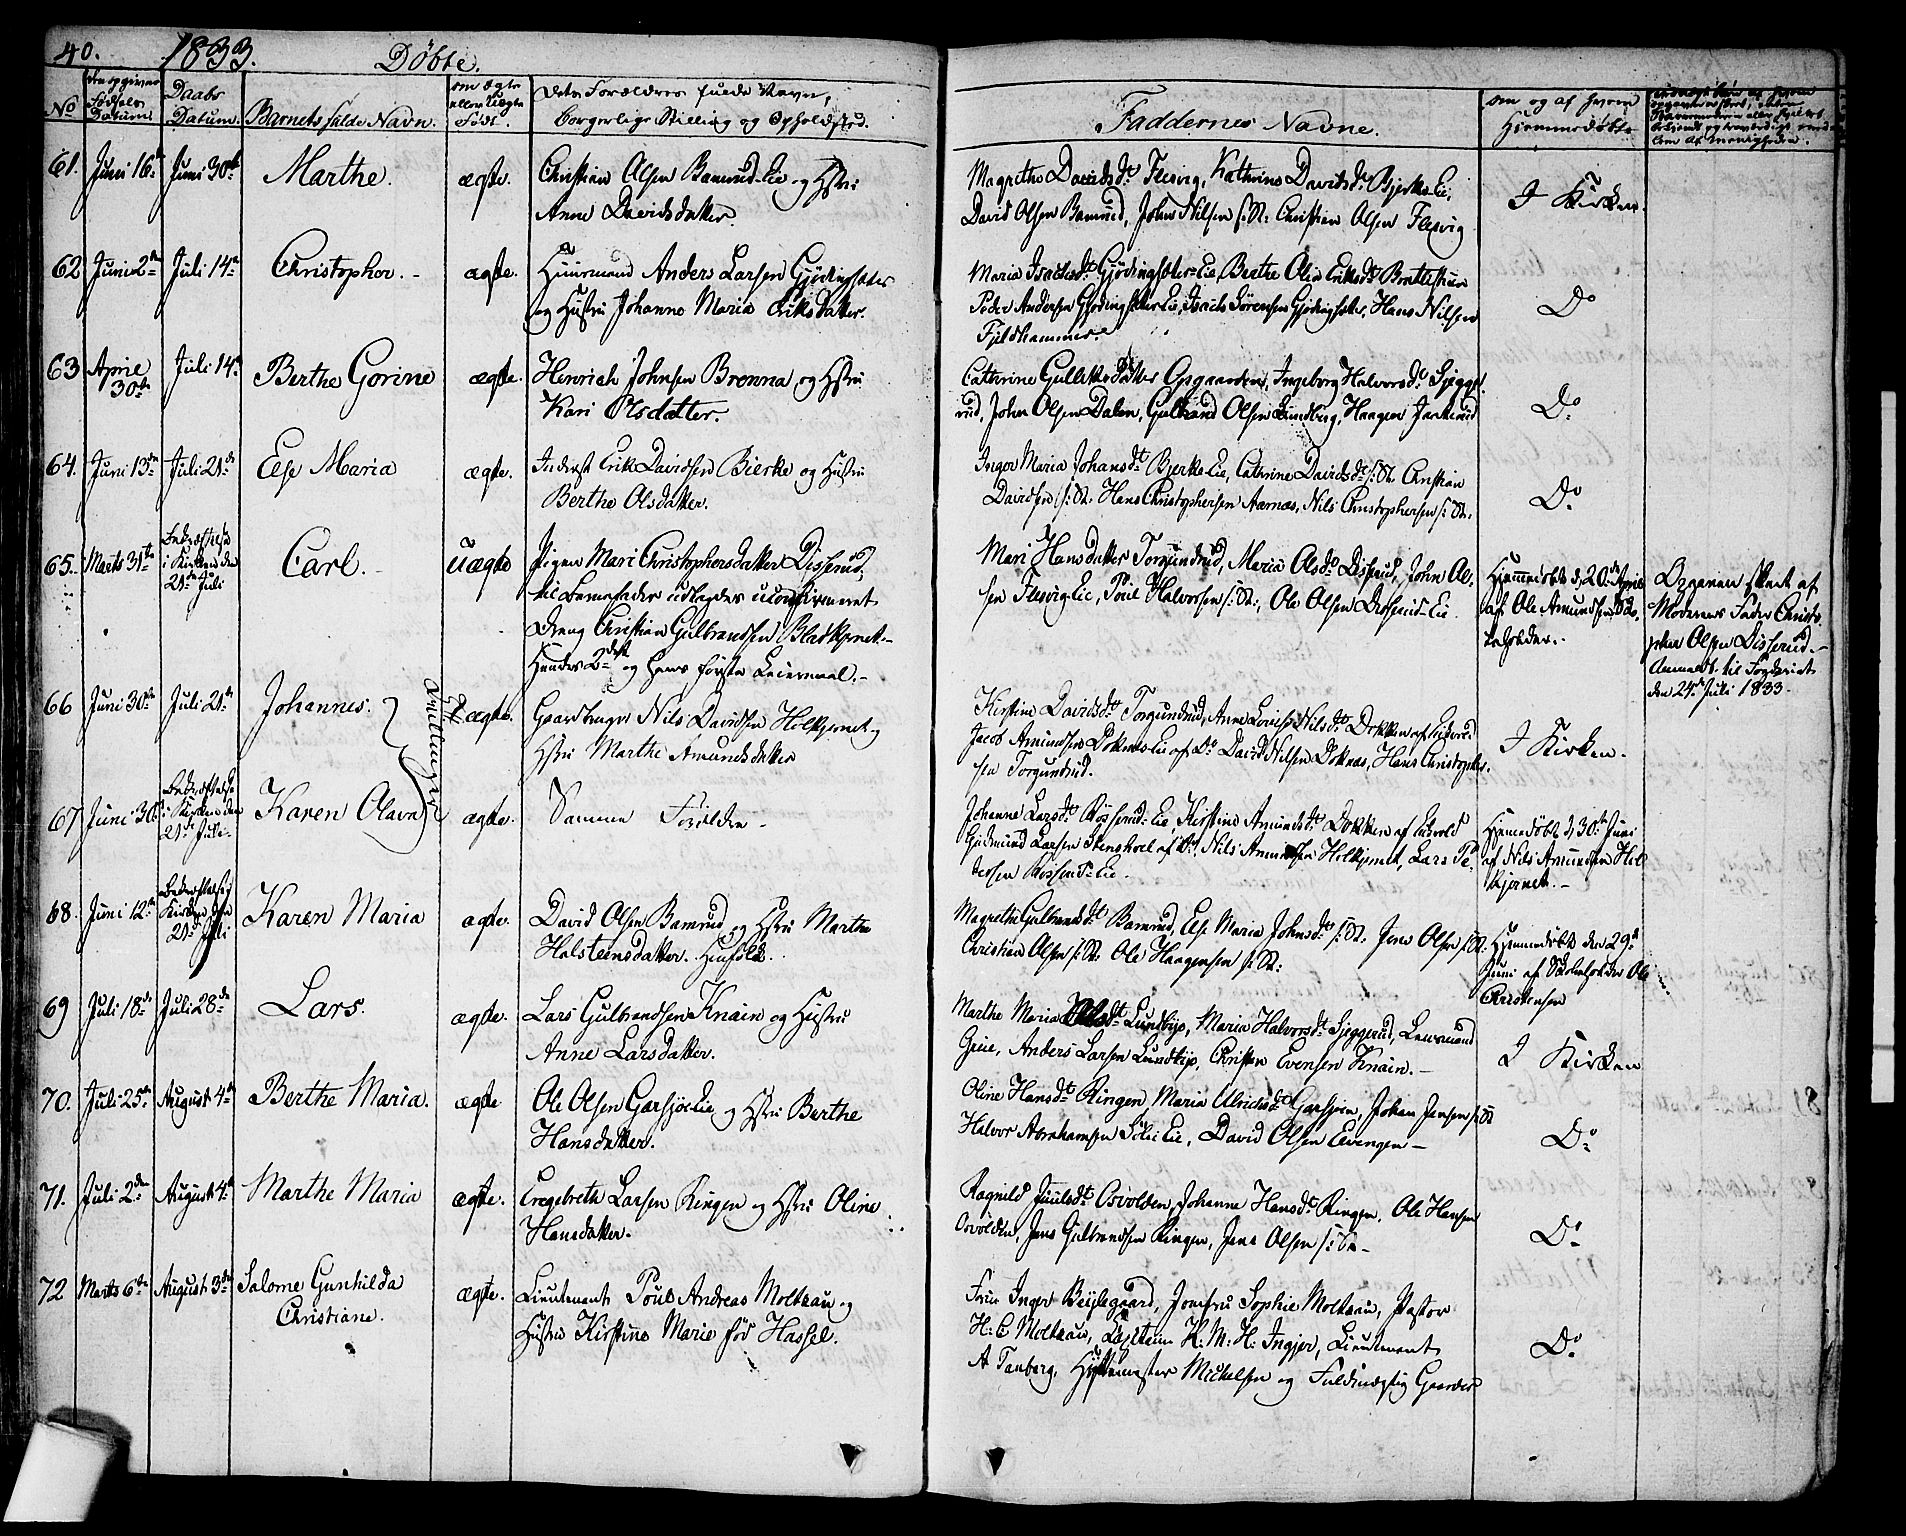 40. 1833. Døbte.
No
Fødsels Datum
Daabs Datum.
Barnets fulde Navn.
om ægte eller uægte Født.
dets Forældres fulde Navn,
Borgerlige Stilling og Opholdsted.
Faddernes Navne.
om og af hvem
Hjemmedøbt
61. Juni 16de Juni 30te Marthe. ægte. Christian Olsen Bamrud-Eie og Hstru
Anne Davidsdatter.
Magrethe Davidsdt Flesvig, Kathrine Davidsdt Bjerke-Eie,
David Olsen Bamrud, Johan Nilsen s: St: Christian Olsen Flesvig
I Kirken.
62 Juni 2den Juli 14de Christopher. ægte. Huusmand Anders Larsen Gjødingsæter
og Hustru Johanne Maria Eriksdatter.
Maria Isachsdt Gjødingsæter-Eie, Berthe Olia Eriksdt Brattestuen
Peder Andersen Gjødingsæter Eie, Isach Sørensen Gjødingsæter, Hans Nilsen
Fjeldhammer.
Do
63 April 30te Juli 14de Berthe Gorine ægte. Henrich Johnsen Brenna og Hstru
Kari Olsdatter.
Cathrine Gulliksdatter Opgaarden, Ingeborg Halvorsdt Sjegge-
rud, John Olsen Dalen, Gulbrand Olsen Lundberg, Haagen
Do
64. Juni 13de Juli 21de Else Maria ægte. Inderst Erik Davidsen Bierke og Hustru
Berthe Olsdatter.
Inger Maria Johansdt Bjerke-Eie, Cathrine Davidsdt s: St: Christian
Davidsen s: St: Hans Christophersen Aarnæs, Nils Christophersen s: St:
Do
65. Marts 31te Bekræftelse
i Kirken den
21de Juli
Carl. uægte Pigen Mari Christophersdatter Disserud,
til Barnefader udlagdes uconfirmeret
Dreng Christian Gulbrandsen Bladkjernet.
Hendes 2det og hans første Leiermaal.
Mari Hansdatter Torgundrud, Maria Olsdt Disserud, John Ol-
sen Flesvig Eie, Poul Halvorsen s: St:, Ole Olsen Disserud-Eie.
Hjemmedøbt d. 20de April
af Ole Amundsen Sko-
leholder.
Opgaven skeet af
Moderens Fader Christo-
pher Olsen Disserud.
Anmeldt til Fogderiet
den 24de Juli 1833.
66 Juni 30te Juli 21de Johannes. Tvillinger ægte. Gaardbruger Nils Davidsen Holkjernet og
Hstru Marthe Amundsdatter
Kirstine Davidsdt Torgundrud, Anne Lovise Nilsdt Dokken af Eidsvold
Jacob Amundsen Doknes-Eie af Do David Nilsen Doknes, Hans Christopher-
sen Torgundrud.
I Kirken.
67 Juni 30te Bekræftelse
i Kirken den
21de Juli.
Karen Olava ægte. Samme Forældre
Johanne Larsdt Rosserud-Eie, Kirstine Amundsdt Dokken af Eidsvold
Gudmund Larsen Stenshoel af Do, Nils Amundsen Holkjernet, Lars Pe-
dersen Rosserud-Eie.
Hjemedøbt d. 30te Juni
af Nils Amundsen Hol-
kjernet.
68. Juni 12te Bekræftelse i
Kirken den
21de Juli
Karen Maria ægte. David Olsen Bamrud og Hstru Marthe
Halsteensdatter.
Magrethe Gulbrandsdt Bamrud, Else Maria Johnsdt s: St: Jens Olsen s: St:
Christian Olsen s: St: Ole Haagensen s: St:
Hjemmedøbt den 29de
Juni af Skoleholder Ole
Christensen
69 Juli 18de Juli 28de Lars. ægte. Lars Gulbrandsen Knain og Hustru
Anne Larsdatter.
Marthe Maria Lundbye, Maria Halvorsdt Sjeggerud, Lensmand
Greie, Anders Larsen Lundbye, Christen Evensen Knain.
I Kirken
70. Juli 25de August 4de Berthe Maria. ægte Ole Olsen Garsjøe-Eie og Hstru Berthe
Hansdatter.
Oline Hansdt Ringen, Maria Ulricksdt Garsjøen, Johan Jensen s: St
Halvor Abrahamsen Eie, David Olsen Evengen
Do
71. Juli 2den August 4de Marthe Maria ægte. Engebreth Larsen Ringen og Hstru Oline
Hansdatter.
Ragnild Juulsdt Osvolden, Johanne Hansdt Ringen, Ole Hansen
Osvolden, Jens Gulbrandsen Ringen, Jens Olsen s: St
Do
72 Marts 6te August 3de Salome Gunhilda
Christiane.
ægte. Lieutenant Poul Andreas Moltzau og
Hustru Kirstine Marie fød Hassel.
Frue Inger Beylegaard, Jomfru Sophie Moltzau, Pastor
H: C Moltzau, Capitain K. M. H. Ingjer, Lieutenant
A Tanberg, Hyttemester Michelsen og Fuldmægtig Gaarder
Do